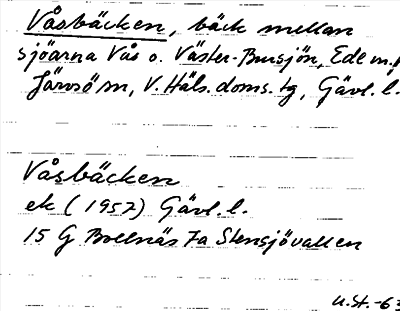 Våsbäcken, bäck mellan
sjöarna Vås o. Väster-Bursjön, Ede m.fl
Järvsö sn, V. Häls. doms. tg, Gävl. l.
Våsbäcken
ek (1957) Gävl. l.
15 G Bollnäs 7a Stensjövallen
U.St.-63